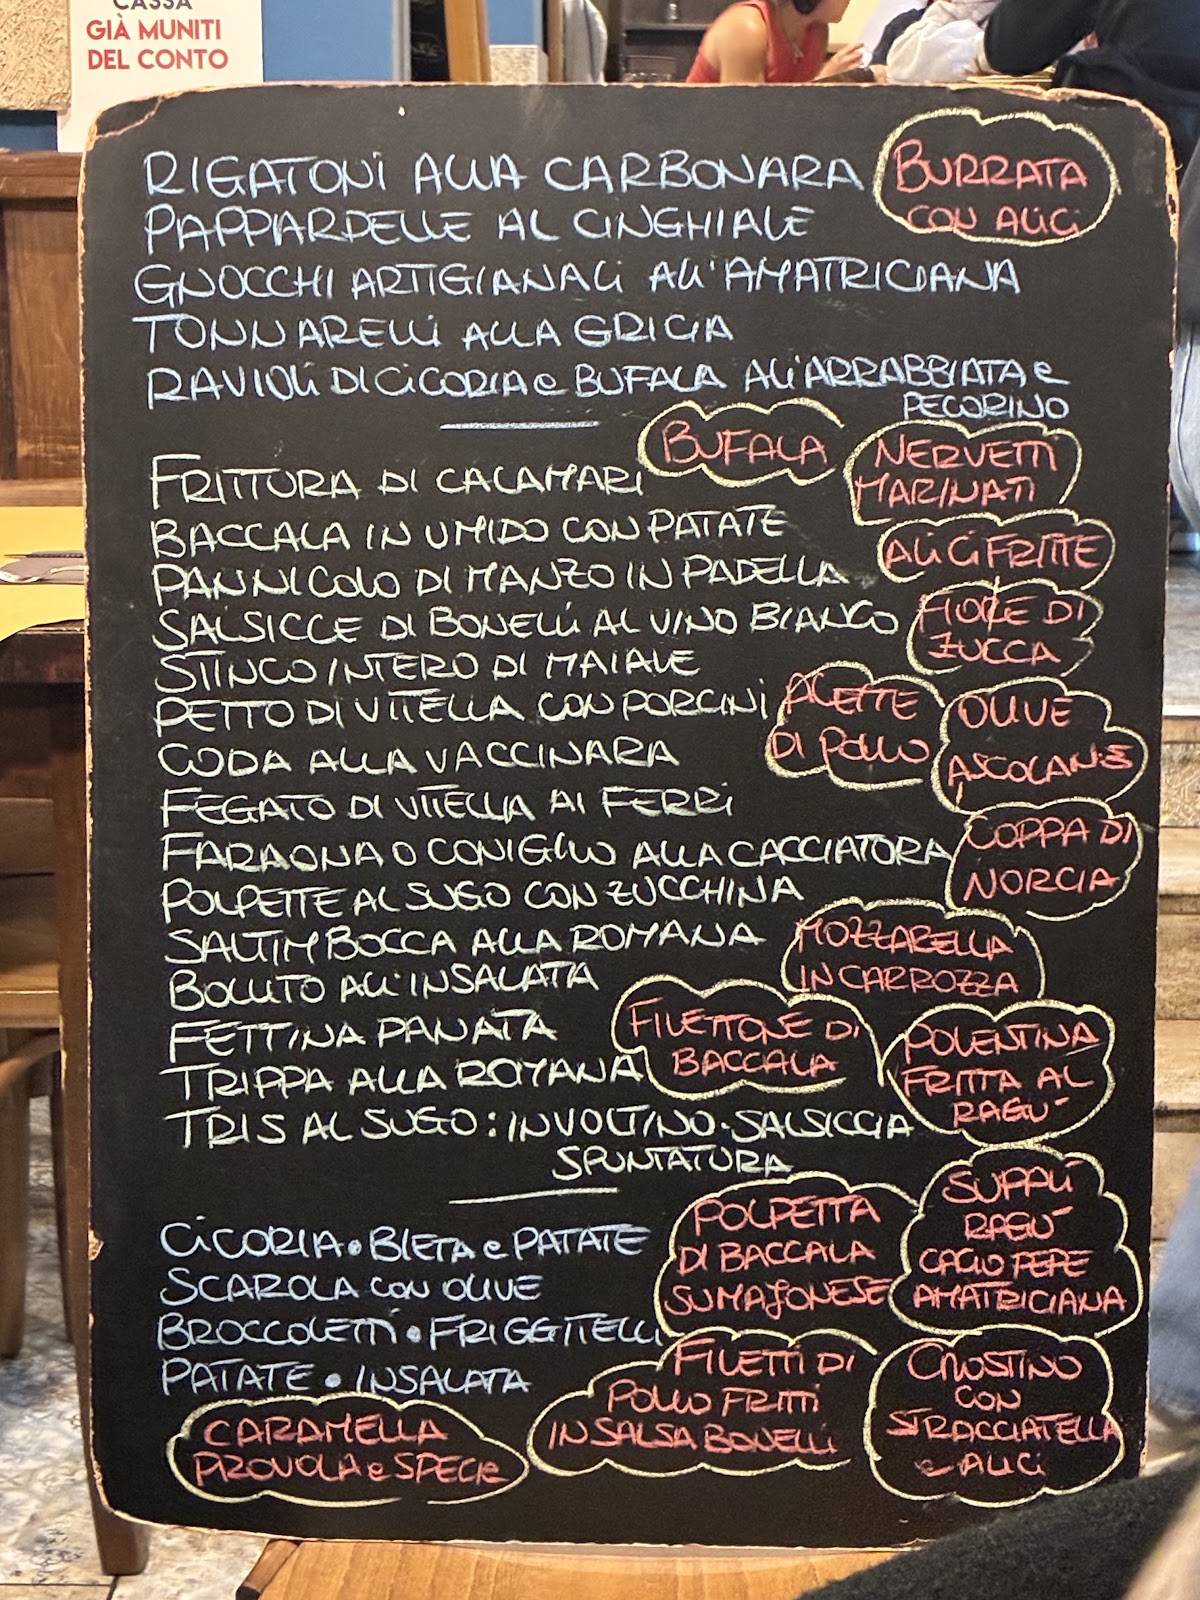 CASSA
GIÀ MUNITI
DEL CONTO
RIGATONI ALLA CARBONARA
PAPPARDELLE AL CINGHIALE
GNOCCHI ARTIGIANALI ALL'AMATRICIANA
TONNARELLI ALLA GRICIA
RAVIOLI DI CICORIA e BUFALA ALL'ARRABBIATA e
PECORINO
BURRATA
CON ALICI
FRITTURA DI CALAMARI
BACCALA IN UMIDO CON PATATE
PANNICOLO DI MANZO IN PADELLA
SALSICCE DI BONELLI AL VINO BIANCO
STINCO INTERO DI MAIALE
PETTO DI VITELLA CON PORCINI
CODA ALLA VACCINARA
FEGATO DI VITELLA AI FERRI
FARAONA O CONIGLIO ALLA CACCIATORA
POLPETTE AL SUGO CON ZUCCHINA
SALTIMBOCCA ALLA ROMANA
BOLLITO ALL'INSALATA
FETTINA PANATA
TRIPPA ALLA ROMANA
TRIS AL SUGO: INVOLTINO·SALSICCIA
SPUNTATURA
BUFALA
NERVETTI
MARINATI
ALICI FRITTE
FIORE DI
ZUCCA
ALETTE
DI POLLO
OLIVE
ASCOLANE
COPPA DI
NORCIA
MOZZARELLA
IN CARROZZA
FILETTONE DI
BACCALA
POLENTINA
FRITTA AL
RAGU'
CICORIA • BIETA e PATATE
SCAROLA CON OLIVE
BROCCOLETTI • FRIGGITELLI
PATATE • INSALATA
POLPETTA
DI BACCALA
SU MAJONESE
SUPPLI
RAGU'
CACIO PEPE
AMATRICIANA
CARAMELLA
PROVOLA e SPECK
FILETTI DI
POLLO FRITTI
IN SALSA BONELLI
CROSTINO
CON
STRACCIATELLA
e ALICI